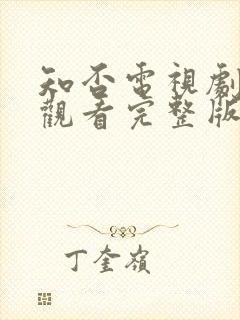 知否電視劇
觀看完整版
丁奎嶺